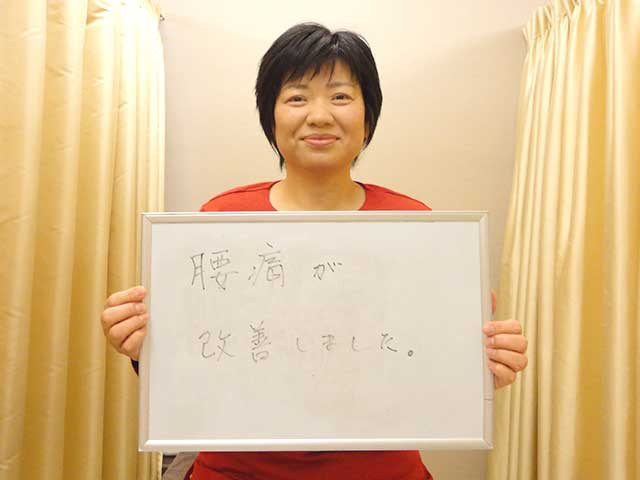 腰痛が
改善しました。